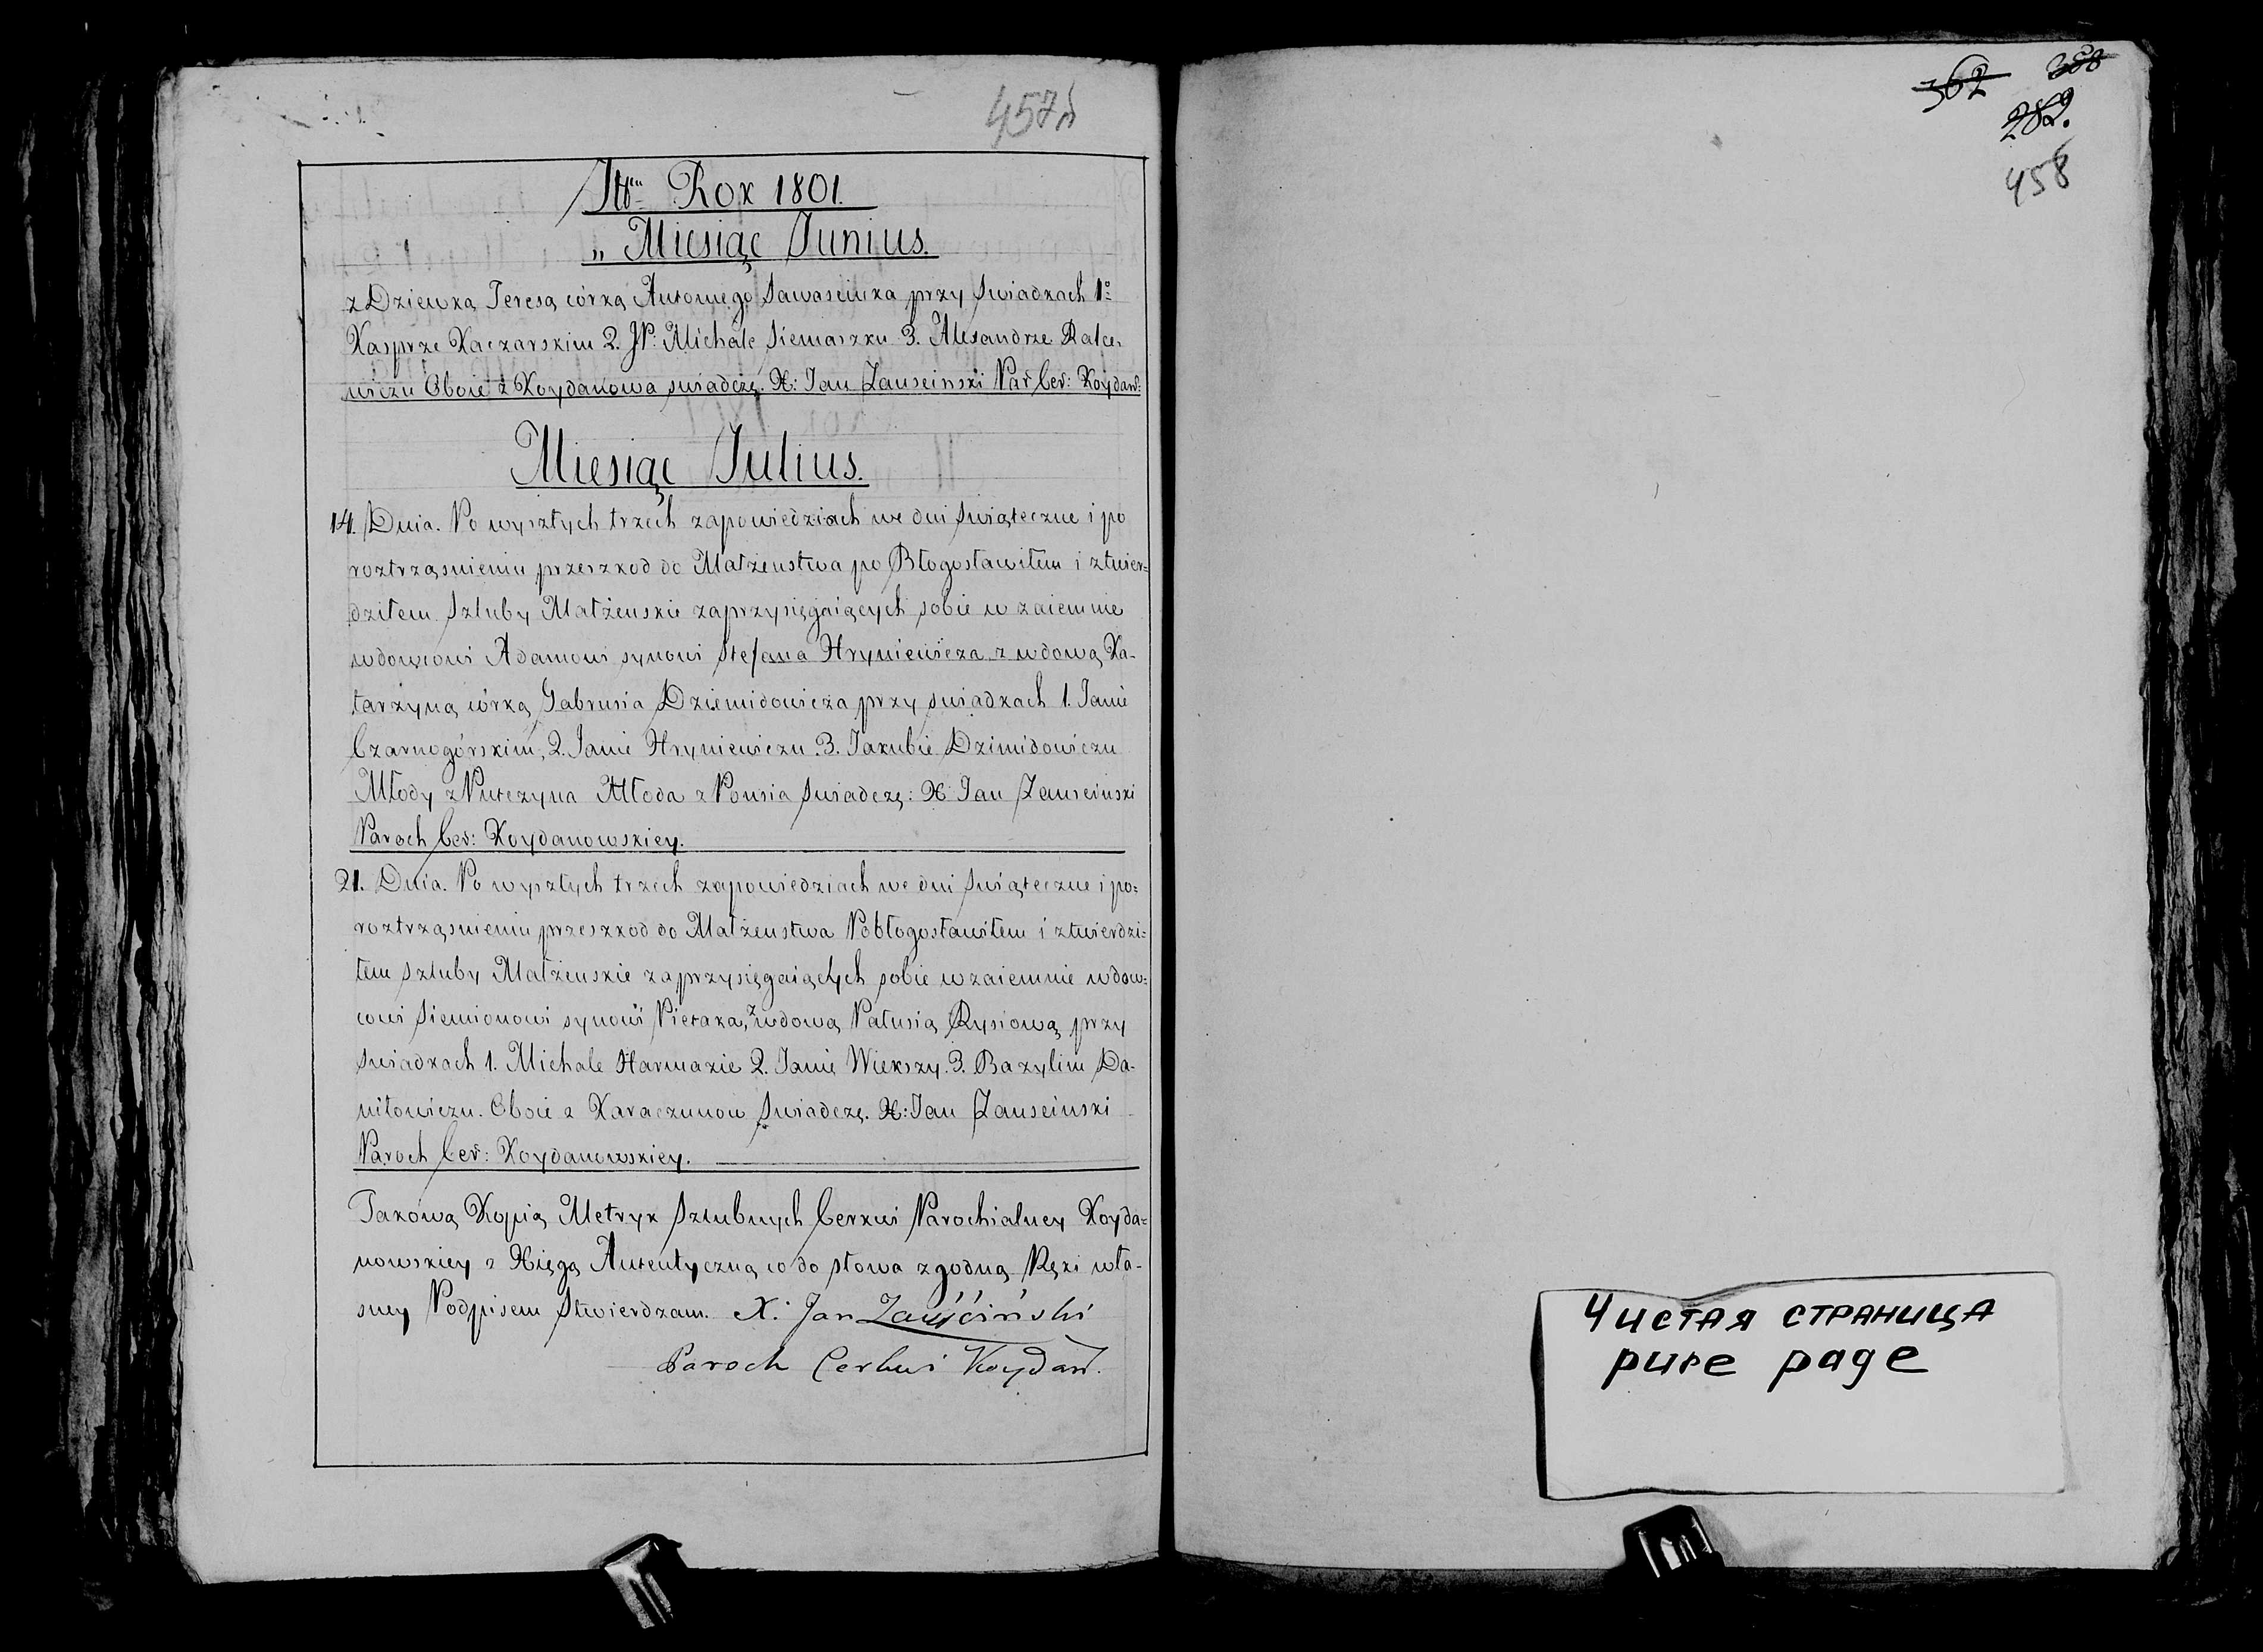 457
Rok 1801.
„ Miesiąc Junius.
z Dziewką Teresą córką Antoniego Sawaściuka przy swiadkach 1º
Kasprze Kaczarskim 2. JP: Michale Siemaszku 3. Alesandrze Ralce,
wiczu Oboie z Koydanowa swiadczę. X: Jan Zausciński Par Cer: Koydan:
Miesiąc Julius.
14. Dnia. Po wyszłych trzech zapowiedziach we dni swiąteczne i po
roztrząsnieniu przeszkod do Małżenstwa po Błogosławiłem i ztwier=
dziłem szluby Małżenskie zaprzysięgaiących sobie w zaiemnie
wdowcowi Adamowi synowi Stefana Hryniewicza z wdową Ka-
tarzyną córką Gabrusia Dziemidowicza przy swiadkach 1. Janie
Czarnogórskim, 2. Janie Hryniewiczu. 3. Jakubie Dzimidowiczu
Młody z Putczyna Młoda z Pousia swiadczę: X: Jan Zausciński
Paroch Cer: Koydanowskiey.
21. Dnia. Po wyszłych trzech zapowiedziach we dni swiąteczne i po=
roztrząsnieniu przeszkod do Małżenstwa Pobłogosławiłem i ztwierdzi=
łem szluby Małżenskie zaprzysięgaiących sobie wzaiemnie wdow=
cowi Siemionowi synowi Pietraka, z wdową Patusią Rysiową przy
swiadkach 1. Michale Harmazie 2. Janie Wiekszy. 3. Bazylim Da-
niłowiczu. Oboie z Karaczunow swiadczę. X: Jan Zausciński
Paroch Cer: Koydanowskiey.
Takową Kopią Metryk szlubnych Cerkwi Parochialney Koyda=
nowskiey z Xięgą Autentyczną co do słowa zgodną Ręki wła-
sney Podpisem Stwierdzam. X. Jan Zauściński
Paroch Cerkwi Koydan.
362 358
282.
458
Чистая страница
pure page